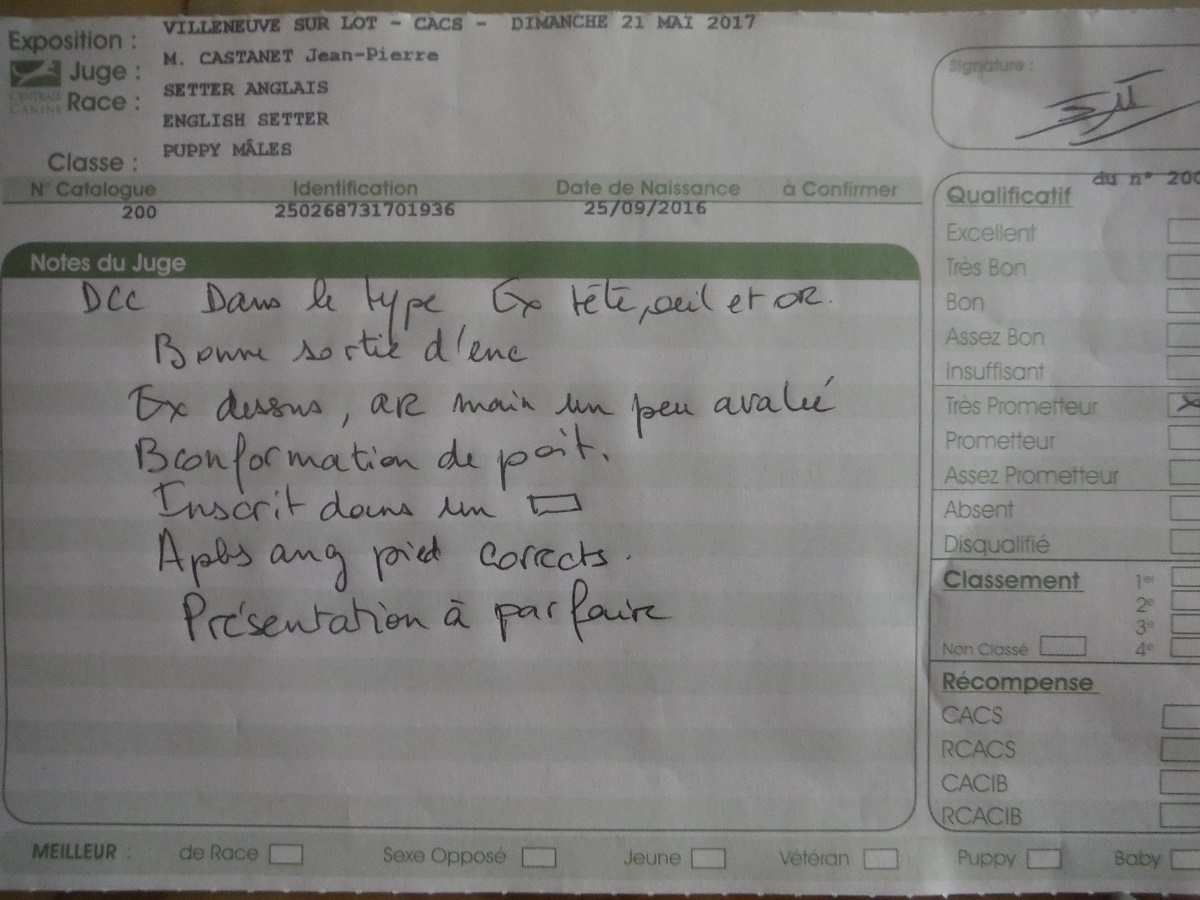 Exposition : VILLENEUVE SUR LOT - CACS - DIMANCHE 21 MAI 2017
Juge : M. CASTANET Jean-Pierre
CENTRALE CANINE
Race : SETTER ANGLAIS
ENGLISH SETTER
Classe : PUPPY MÂLES
Signature :
N° Catalogue Identification Date de Naissance à Confirmer
200 250268731701936 25/09/2016
du n° 200
Notes du Juge
DCC Dans le type Ex tête, oeil et OR.
Bonne sortie d'enc
Ex dessus, AR main un peu avalé
B conformation de poit.
Inscrit dans un
Apbs ang pied corrects.
Présentation à parfaire
Qualificatif
Excellent
Très Bon
Bon
Assez Bon
Insuffisant
Très Prometteur X
Prometteur
Assez Prometteur
Absent
Disqualifié
Classement 1er
2e
3e
Non Classé 4e
Récompense
CACS
RCACS
CACIB
RCACIB
MEILLEUR : de Race Sexe Opposé Jeune Vétéran Puppy Baby